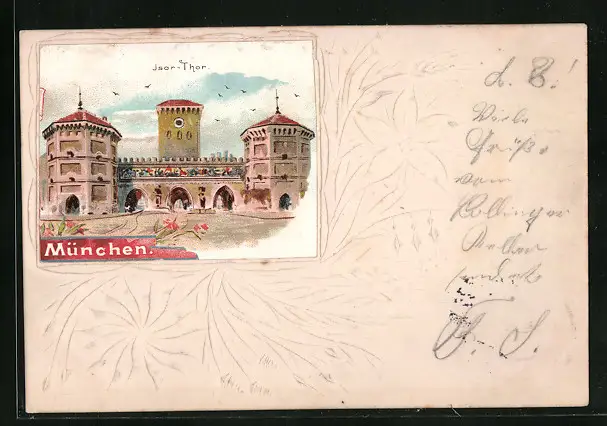 Isar-Thor.
München.
L. B.!
Viele
Grüße
vom
Kollinger
Keller
sendet
F. S.